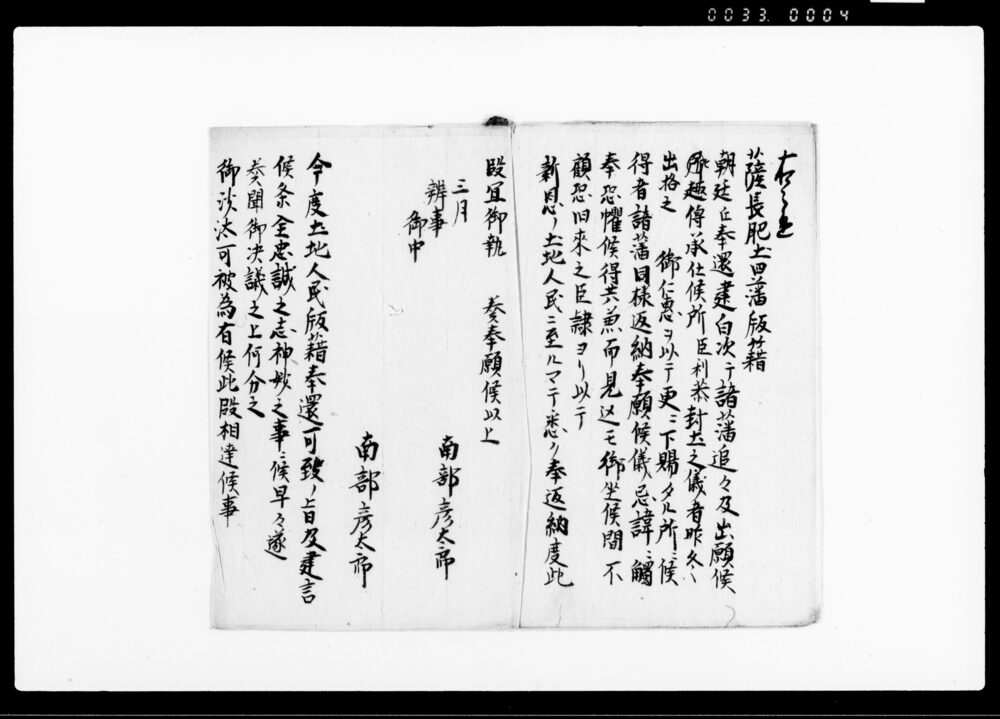 0033.0004
薩長肥土四藩版籍
朝廷江奉還建白次テ諸藩追々及出願候
趣傳承仕候所臣利恭封土之儀者昨冬
出格之 御仁恵ヲ以テ更ニ下賜タル所ニ候
得者諸藩同様返納奉願候儀忌諱ニ觸
奉恐懼候得共兼而見込モ御坐候間不
顧恐旧来之臣隷ヨリ以テ
新恩ノ土地人民ニ至ルマテ悉ク奉返納度此
段宜御執 奏奉願候以上
三月 南部彦太郎
辨事
御中
南部彦太郎
今度土地人民版籍奉還可致ノ旨及建言
候条全忠誠之志神妙之事ニ候早々遂
奏聞御决議之上何分之
御沙汰可被為有候此段相達候事